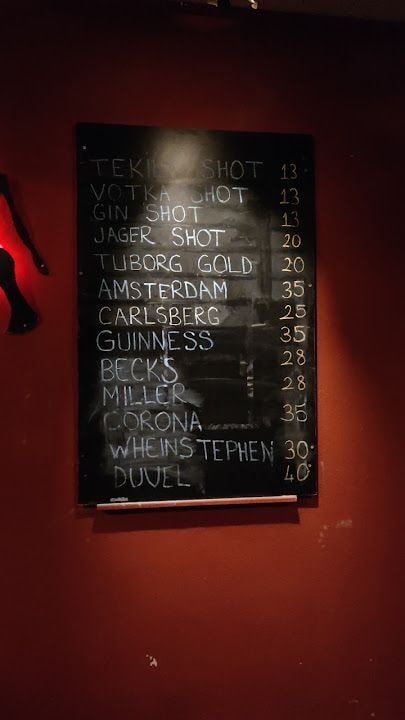 TEKILA SHOT 13
VOTKA SHOT 13
GIN SHOT 13
JAGER SHOT 20
TUBORG GOLD 20
AMSTERDAM 35
CARLSBERG 25
GUINNESS 35
BECK'S 28
MILLER 28
CORONA 35
WHEINSTEPHEN 30
DUVEL 40